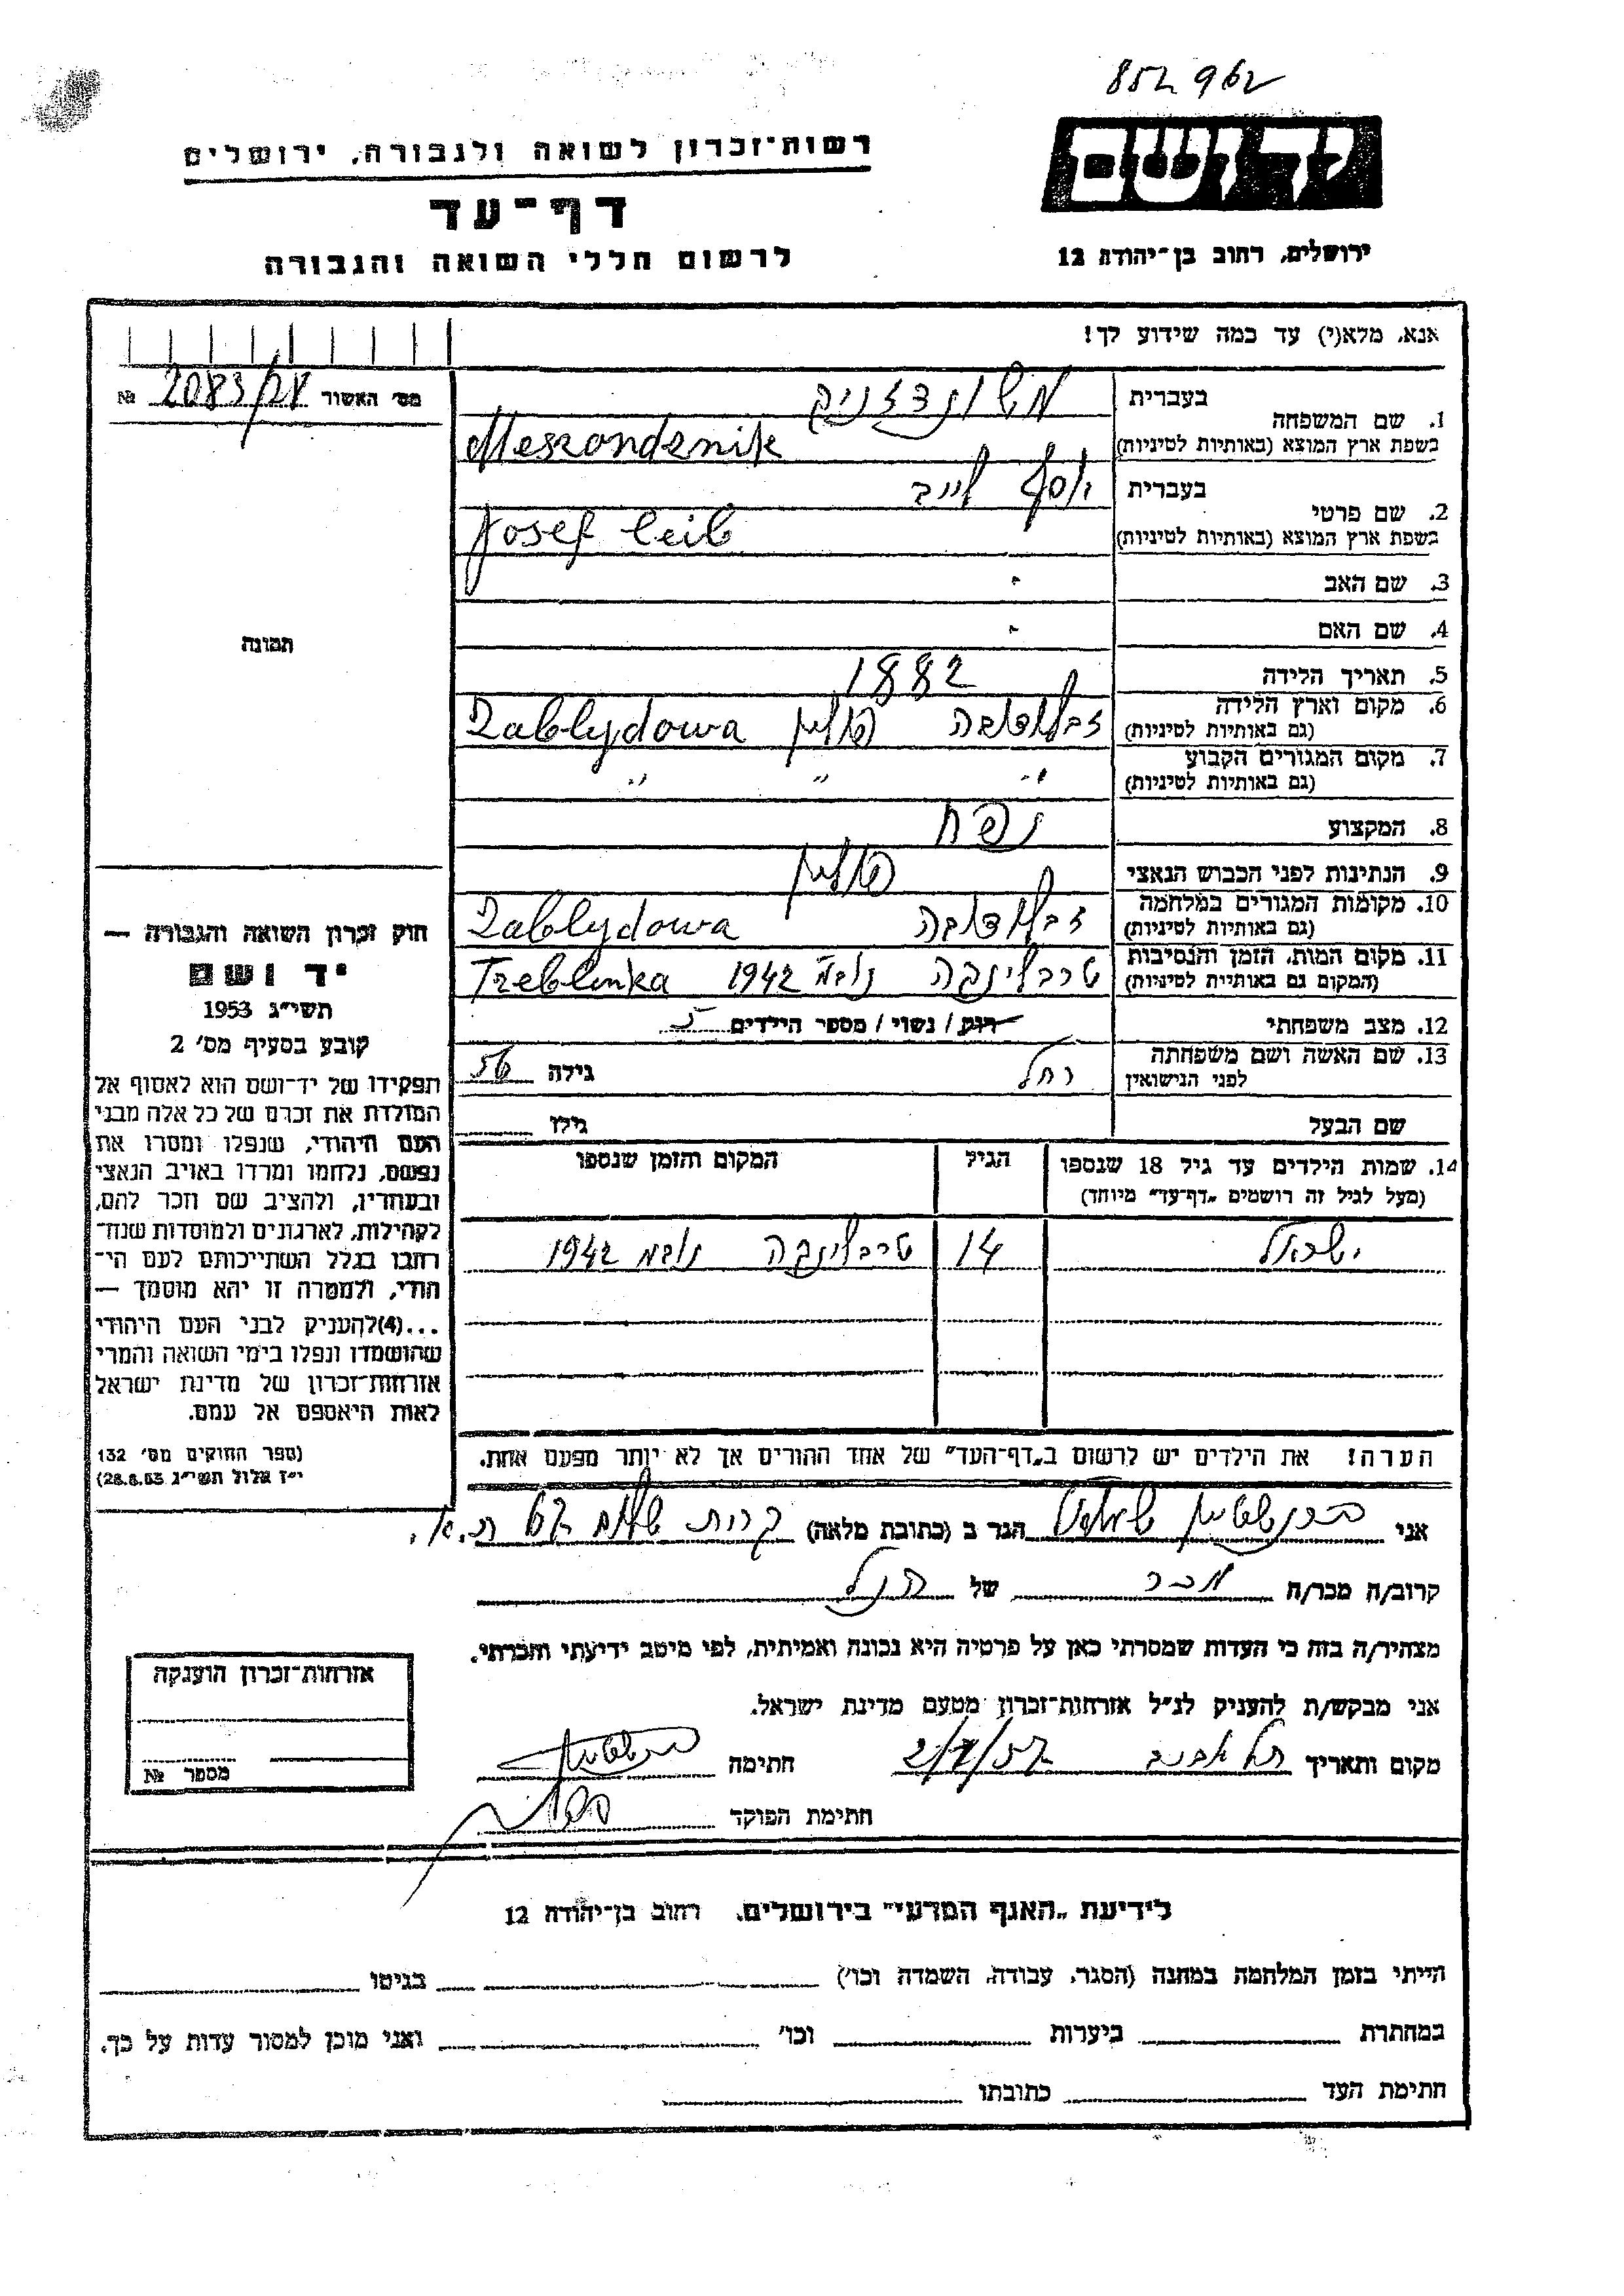 852962
יד ושם
רשות־זכרון לשואה ולגבורה, ירושלים
דף־עד
לרשום חללי השואה והגבורה
ירושלים, רחוב בן־יהודה 12
אנא, מלא(י) עד כמה שידוע לך!
מס׳ האשור 2083/28 №
1. שם המשפחה
בעברית משונדזניק
בשפת ארץ המוצא (באותיות לטיניות) Meszondznik
2. שם פרטי
בעברית יוסף לייב
בשפת ארץ המוצא (באותיות לטיניות) Josef Leib
3. שם האב -
4. שם האם -
5. תאריך הלידה 1882
6. מקום וארץ הלידה
(גם באותיות לטיניות) זבלודובה פולין Zabłydowa
7. מקום המגורים הקבוע
(גם באותיות לטיניות) " " "
8. המקצוע נפח
9. הנתינות לפני הכבוש הנאצי פולין
10. מקומות המגורים במלחמה
(גם באותיות לטיניות) זבלודובה Zabłydowa
11. מקום המות, הזמן והנסיבות
(המקום גם באותיות לטיניות) טרבלינקה נובמ׳ 1942 Treblinka
12. מצב משפחתי רווק / נשוי / מספר הילדים 5
13. שם האשה ושם משפחתה
לפני הנישואין רחל גילה 56
שם הבעל גילו
14. שמות הילדים עד גיל 18 שנספו
(מעל לגיל זה רושמים „דף־עד” מיוחד)
הגיל
המקום והזמן שנספו
ישראל 14 טרבלינקה נובמ 1942
הערה! את הילדים יש לרשום ב„דף־העד” של אחד ההורים אך לא יותר מפעם אחת.
תמונה
חוק זכרון השואה והגבורה —
יד ושם
תשי״ג 1953
קובע בסעיף מס׳ 2
תפקידו של יד־ושם הוא לאסוף אל
המולדת את זכרם של כל אלה מבני
העם היהודי, שנפלו ומסרו את
נפשם, נלחמו ומרדו באויב הנאצי
ובעוזריו, ולהציב שם וזכר להם,
לקהילות, לארגונים ולמוסדות שנח־
רבו בגלל השתייכותם לעם הי־
הודי, ולמטרה זו יהא מוסמך —
...(4)להעניק לבני העם היהודי
שהושמדו ונפלו בימי השואה והמרי
אזרחות־זכרון של מדינת ישראל
לאות היאספם אל עמם.
(ספר החוקים מס׳ 132
י״ז אלול תשי״ג 28.8.53)
אני ברנשטיין שמואל הגר ב (כתובת מלאה) קרית שלום ת.א.
קרוב/ה מכר/ה מכר של הנ״ל
מצהיר/ה בזה כי העדות שמסרתי כאן על פרטיה היא נכונה ואמיתית, לפי מיטב ידיעתי והכרתי.
אני מבקש/ת להעניק לנ״ל אזרחות־זכרון מטעם מדינת ישראל.
מקום ותאריך תל אביב 2/7/57 חתימה ברנשטיין
חתימת הפוקד
אזרחות־זכרון הוענקה
מספר №
לידיעת „האגף המדעי” בירושלים, רחוב בן־יהודה 12
הייתי בזמן המלחמה במחנה (הסגר, עבודה, השמדה וכו׳) בגיטו
במחתרת ביערות וכו׳ ואני מוכן למסור עדות על כך.
חתימת העד כתובתו